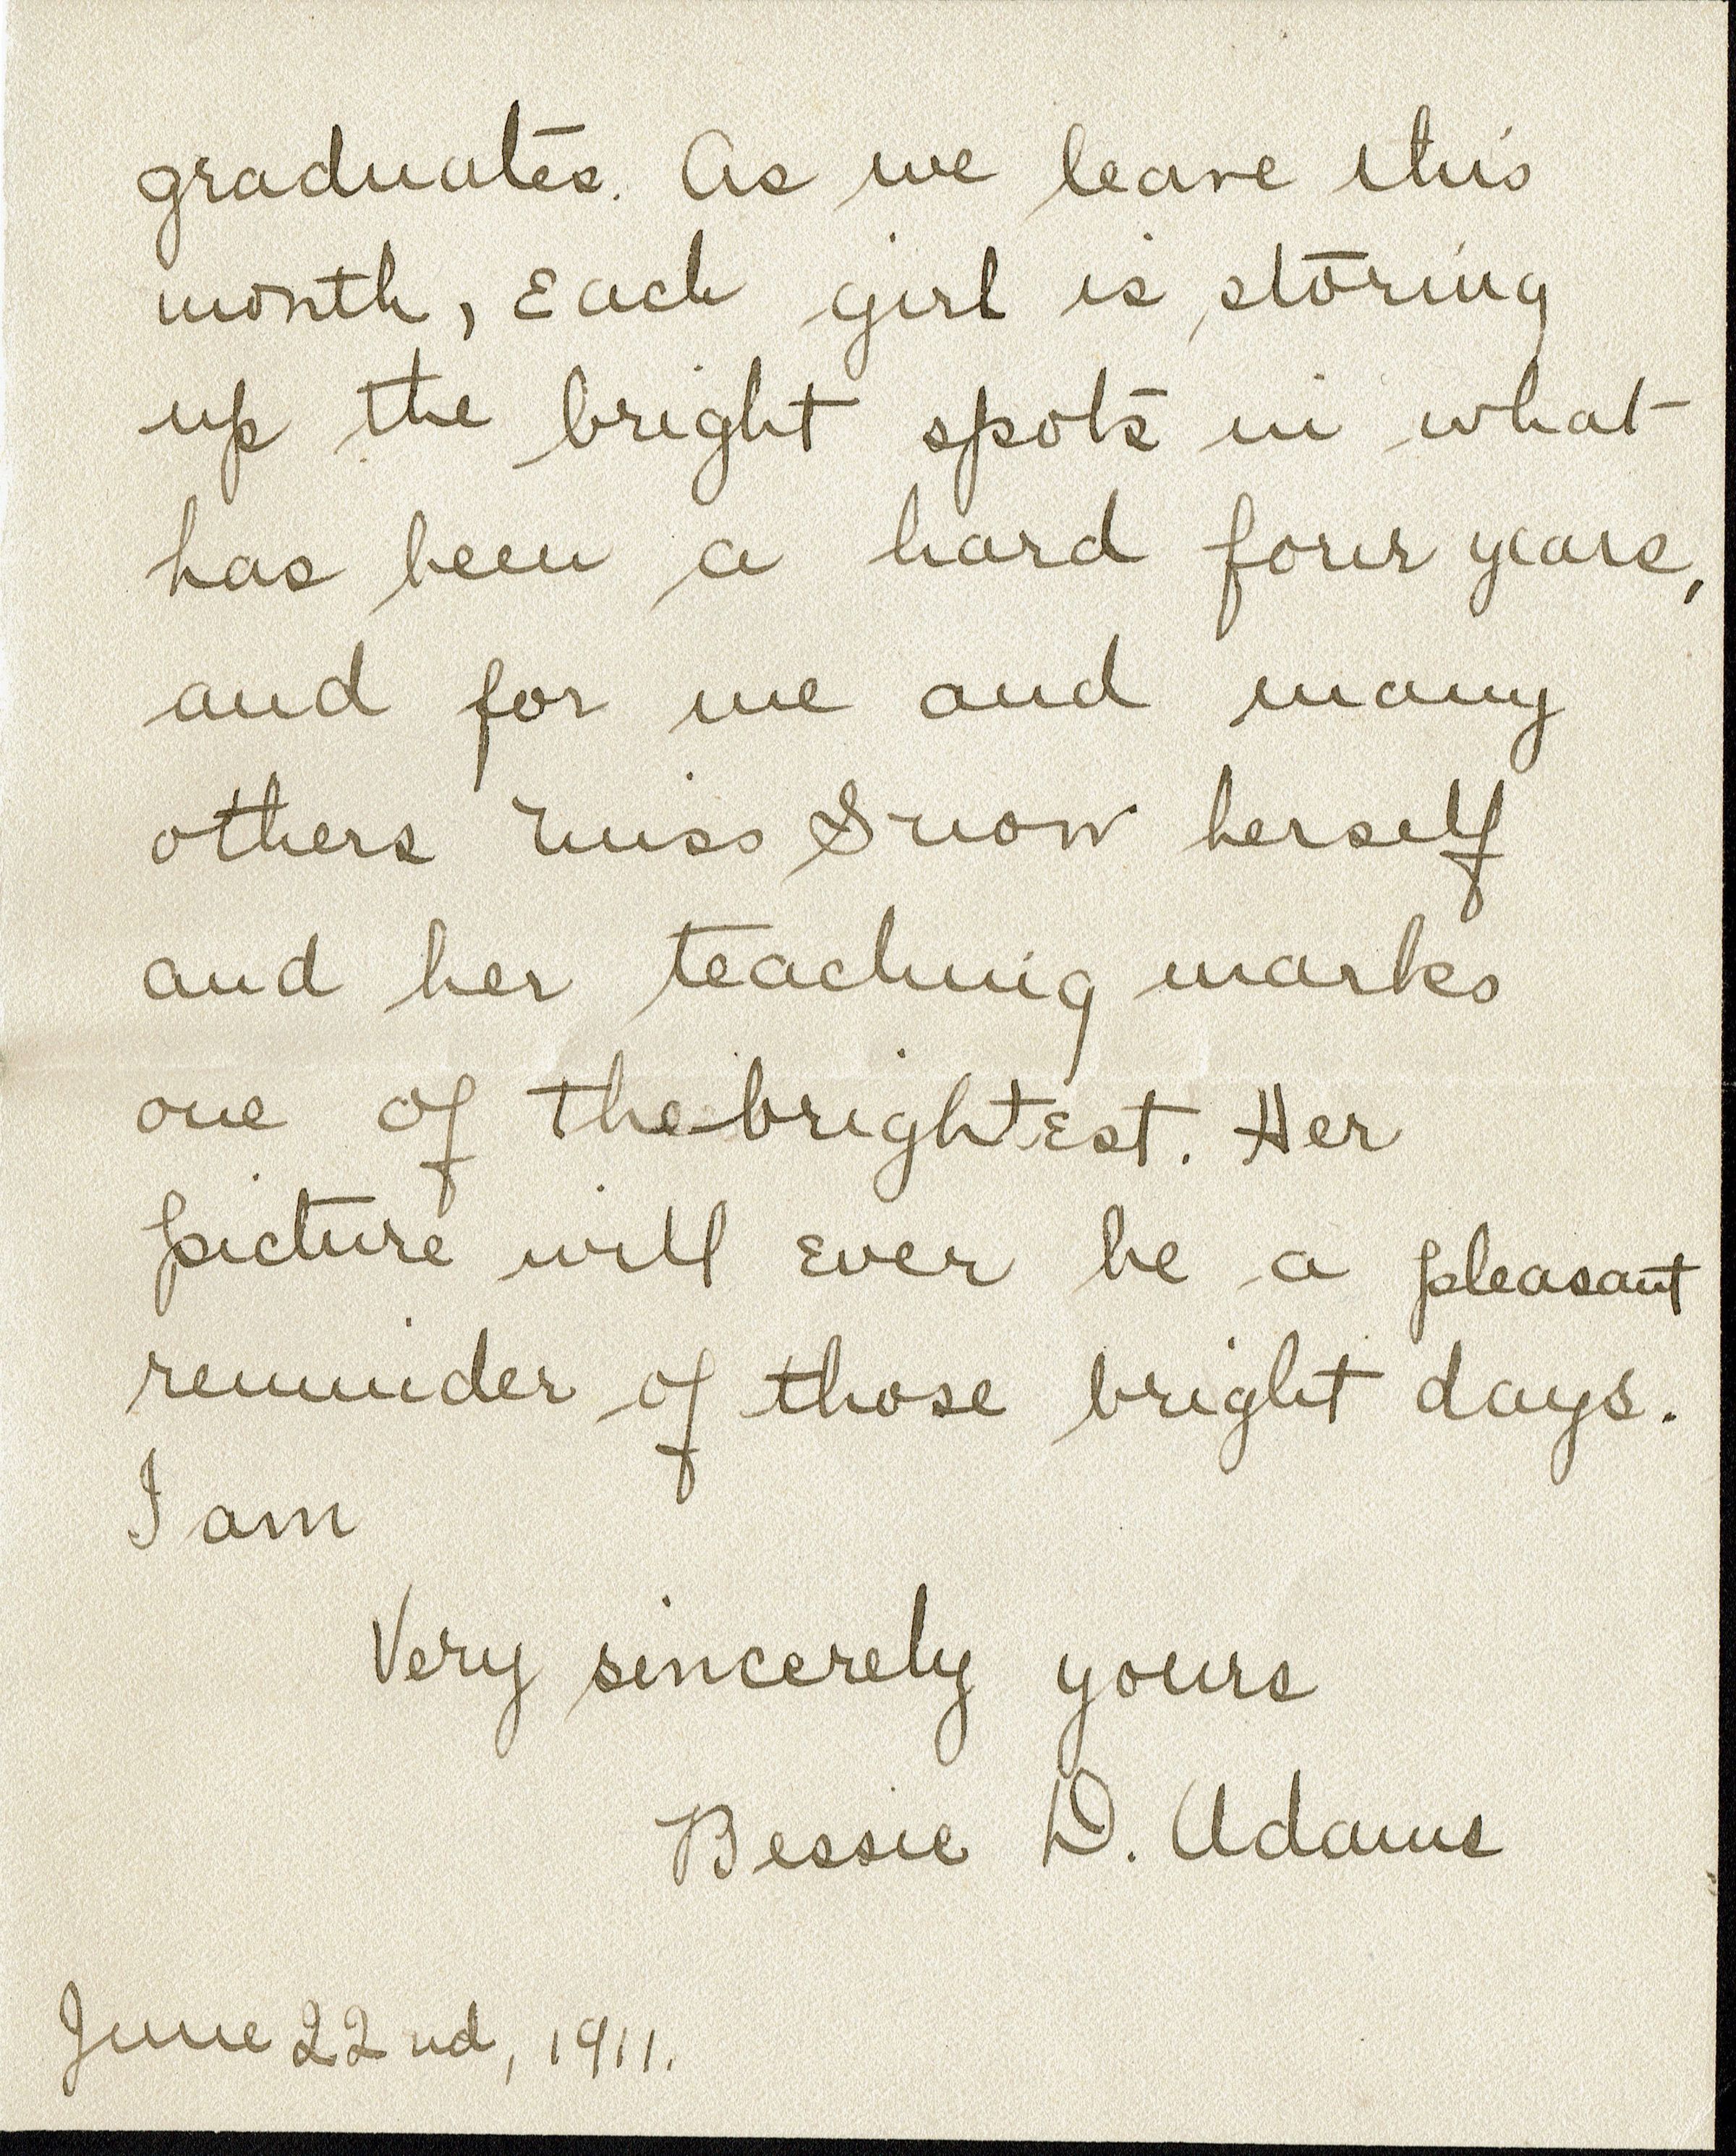 graduates. As we leave this
month, Each girl is storing
up the bright spots in what
has been a hard four years,
and for me and many
others Miss Snow herself
and her teaching marks
one of the brightest. Her
picture will Ever be a pleasant
reminder of those bright days.
I am
Very sincerely yours
Bessie D. Adams
June 22nd, 1911.